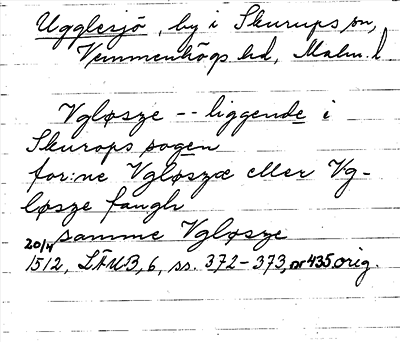 Ugglesjö, by i Skurups sn,
Vemmenhögs hd, Malm. l
Vgløsze -- liggende i
Skurops sogen
for:ne Vgløszæ eller Vg-
løsze fangh
samme Vgløsze
20/4
1512, LÄUB, 6, ss. 372-373, nr 435 orig.